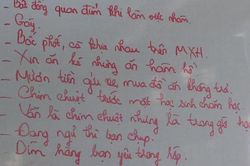 - Bất đồng quan điểm khi làm việc nhóm.
- Gãy.
- Bóc phốt, cà khịa nhau trên MXH.
- Xin ăn ké nhưng ăn hàm hồ.
- Mượn tiền quỵt, mua đồ ăn không trả.
- Chim chuột trước mặt học sinh chăm học
- Vẫn là chim chuột nhưng là trong giờ học
- Đang ngủ thì bạn chụp.
- Dìm hàng bạn yêu trong lớp.